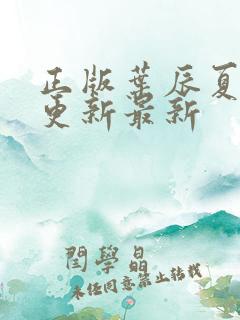 正版葉辰夏
更新最新
閆學晶
未经同意禁止转载